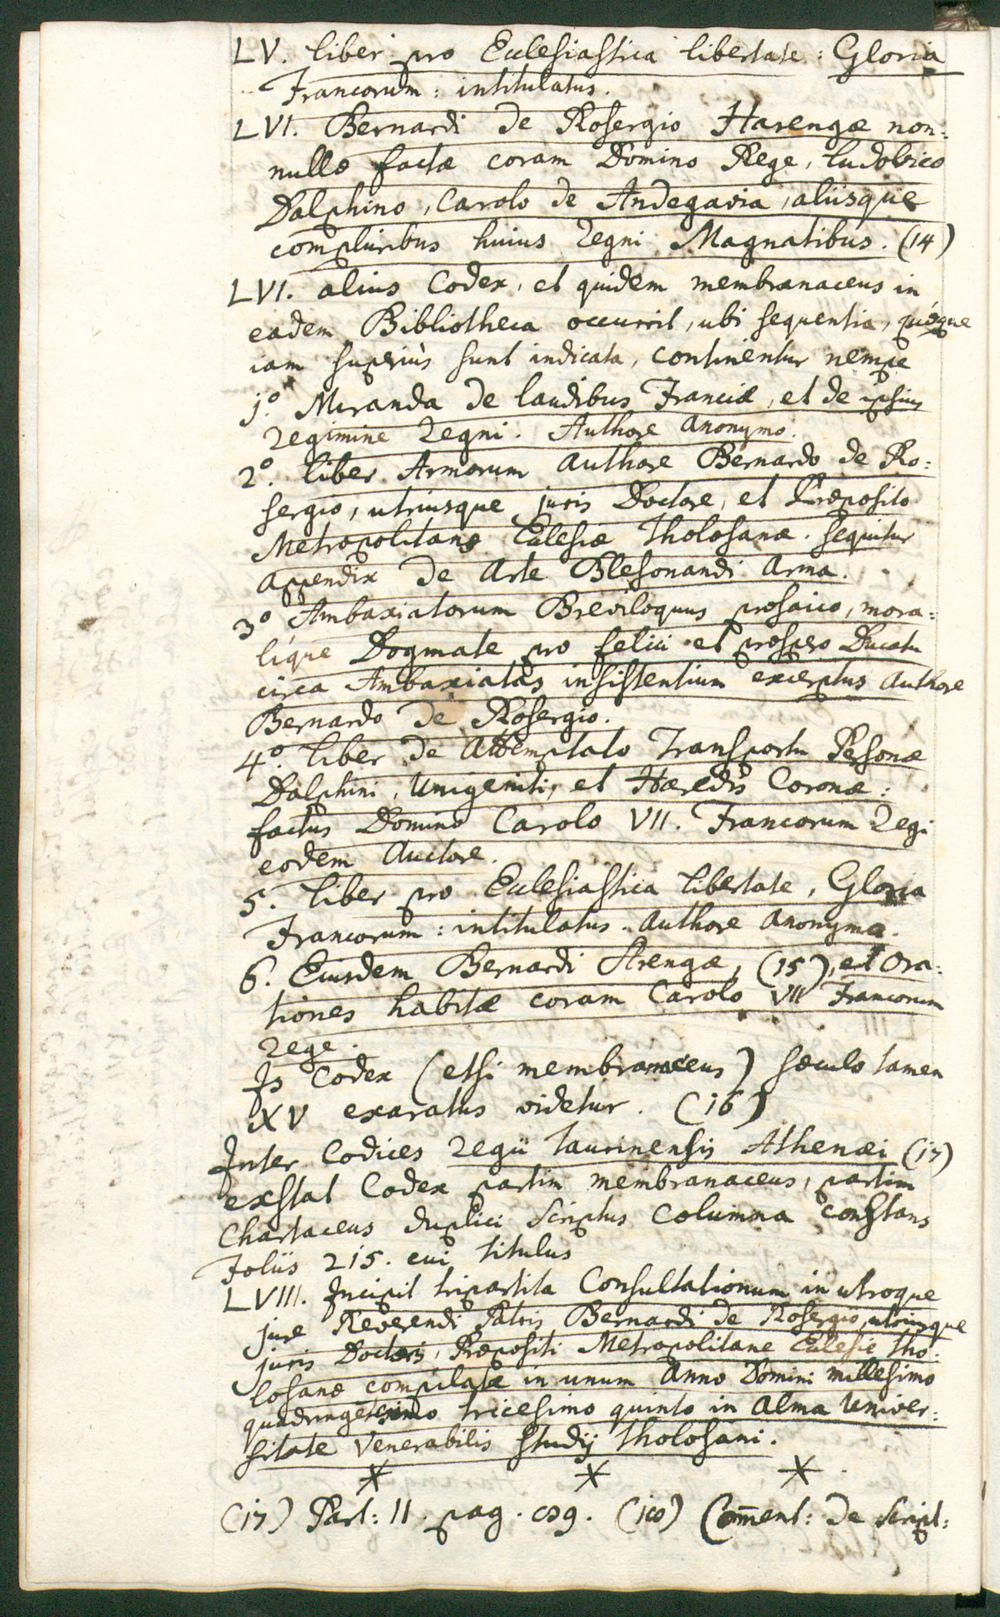 LV. liber pro Ecclesiastica libertate : Gloria
Francorum : intitulatus.
LVI. Bernardi de Rosergio Harengæ non=
nullæ factæ coram Domino Rege, Ludovico
Dalphino, Carolo de Andegavia, aliisque
compluribus huius regni Magnatibus. (14)
LVI. alius Codex, et quidem membranaceus in
eadem Bibliotheca occurrit, ubi sequentia, quæque
iam superiùs sunt indicata, continentur nempe
1.º Miranda de laudibus Franciæ, et de ipsius
regimine regni. Authore Anonymo.
2º. liber Armorum Authore Bernardo de Ro=
sergio, utriusque juris Doctore, et Præposito
Metropolitanæ Eclesiæ Tholosanæ. sequitur
appendix de Arte Blesonandi Arma.
3º Ambaxiatorum Breviloquus prosaico, mora=
lique Dogmate pro felici et prospero Ducatu
circa Ambaxiatas insistentium excerptus Authore
Bernardo de Rosergio.
4º. liber de Attemptato Transportu Personæ
Dalphini, Unigeniti, et Hæredis Coronæ :
factus Domino Carolo VII. Francorum Regi
eodem Auctore.
5. liber pro Ecclesiastica libertate, Gloria
Francorum : intitulatus. Authore Anonymo.
6. Eiusdem Bernardi Arengæ, (15), et Ora=
tiones habitæ coram Carolo VII Francorum
rege.
Is Codex (etsi membranaceus) sæculo tamen
XV exaratus videtur. (16)
Inter Codices regii taurinensis Athenæi (17)
exstat Codex partim membranaceus, partim
Chartaceus duplici scriptus columna constans
foliis 215. cui titulus
LVIII. Incipit tripartita Consultationum in utroque
jure Reverendi Patris Bernardi de Rosergio, utriusque
juris Doctoris, Præpositi Metropolitane Eclesie Tho=
losanæ compilatæ in unum Anno Domini millesimo
quadringetesimo tricesimo quinto in Alma Univer=
sitate Venerabilis studij tholosani.
* * *
(17) Part: II. pag. 89. (18) Coment: de Script: